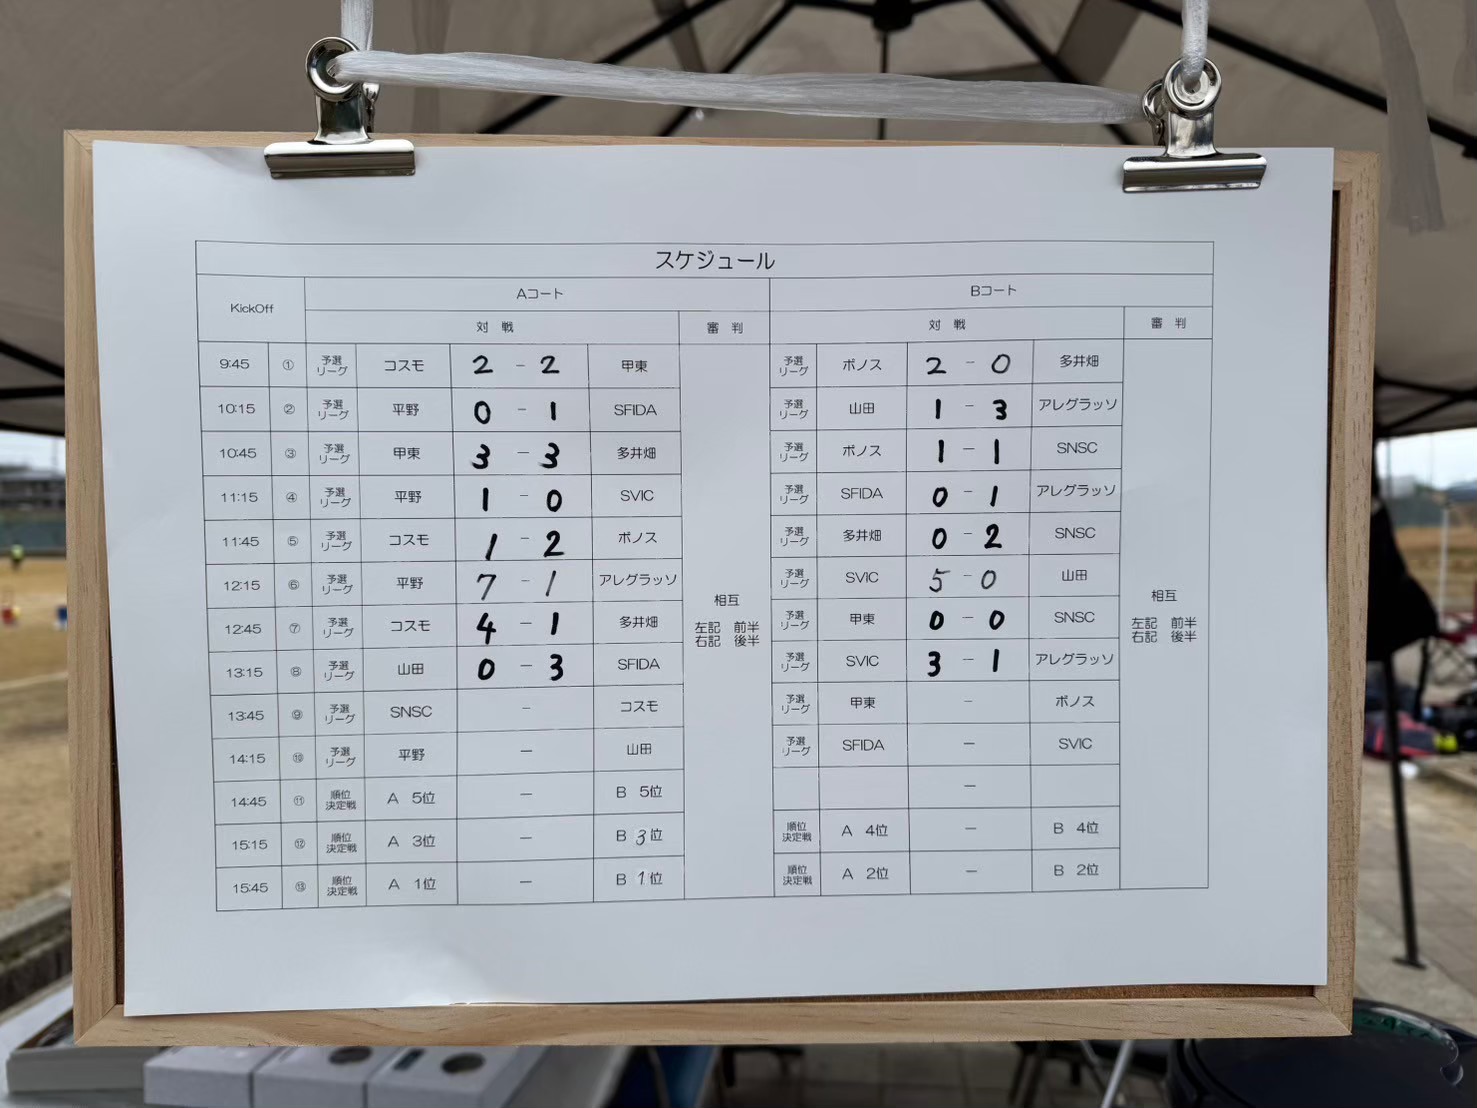 スケジュール
KickOff Aコート Bコート
対 戦 審 判 対 戦 審 判
9:45 ① 予選リーグ コスモ 2 - 2 甲東 予選リーグ ボノス 2 - 0 多井畑
10:15 ② 予選リーグ 平野 0 - 1 SFIDA 予選リーグ 山田 1 - 3 アレグラッソ
10:45 ③ 予選リーグ 甲東 3 - 3 多井畑 予選リーグ ボノス 1 - 1 SNSC
11:15 ④ 予選リーグ 平野 1 - 0 SVIC 予選リーグ SFIDA 0 - 1 アレグラッソ
11:45 ⑤ 予選リーグ コスモ 1 - 2 ボノス 予選リーグ 多井畑 0 - 2 SNSC
12:15 ⑥ 予選リーグ 平野 7 - 1 アレグラッソ 予選リーグ SVIC 5 - 0 山田
相互 相互
12:45 ⑦ 予選リーグ コスモ 4 - 1 多井畑 左記 前半 予選リーグ 甲東 0 - 0 SNSC 左記 前半
右記 後半 右記 後半
13:15 ⑧ 予選リーグ 山田 0 - 3 SFIDA 予選リーグ SVIC 3 - 1 アレグラッソ
13:45 ⑨ 予選リーグ SNSC - コスモ 予選リーグ 甲東 - ボノス
14:15 ⑩ 予選リーグ 平野 - 山田 予選リーグ SFIDA - SVIC
14:45 ⑪ 順位決定戦 A 5位 - B 5位 -
15:15 ⑫ 順位決定戦 A 3位 - B 3位 順位決定戦 A 4位 - B 4位
15:45 ⑬ 順位決定戦 A 1位 - B 1位 順位決定戦 A 2位 - B 2位